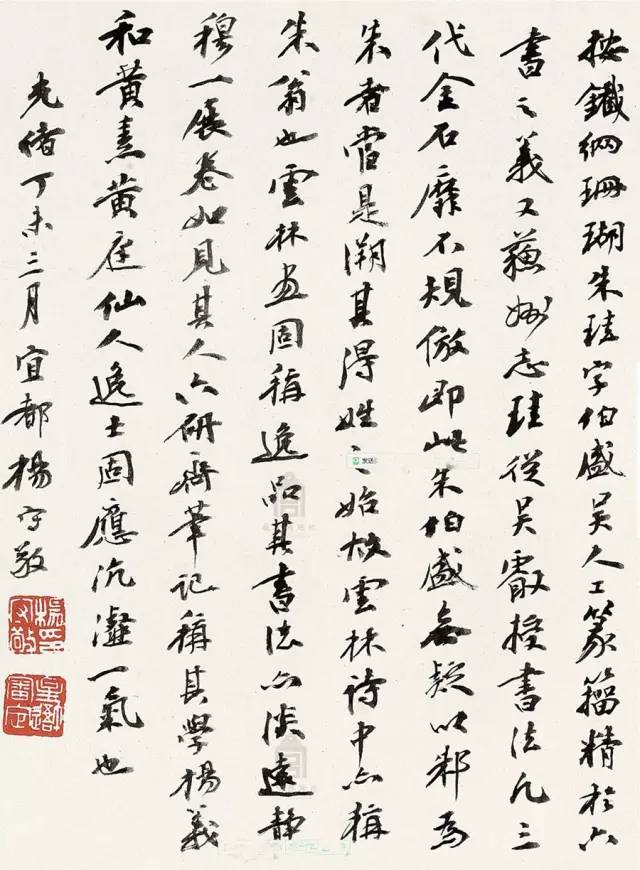 按鐵網珊瑚朱珪字伯盛吳人工篆籀精於六
書之義又蘇州志珪從吳叡授書法凡三
代金石靡不規倣即此朱伯盛無疑以邾為
朱者當是溯其得姓之始故雲林詩中亦稱
朱翁也雲林畫固稱逸品其書法亦淡遠靜
穆一展卷如見其人六研齋筆記稱其學楊羲
和黃素黃庭仙人逸士固應沆瀣一氣也
光緒丁未三月宜都楊守敬
楊守敬印
星吾審定
发送